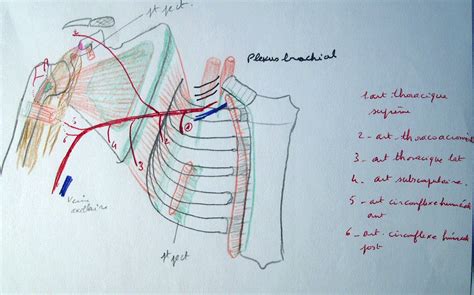 pt pect
Plexus brachial
1. art thoracique
suprême
2 - art. thoracoacromiale
3 - art thoracique lat
4 - art subscapulaire
5 - art circonflexe humérale
ant
6 - art. circonflexe humérale
post
1
2
3
4
5
6
Veine
axillaire
pt pect